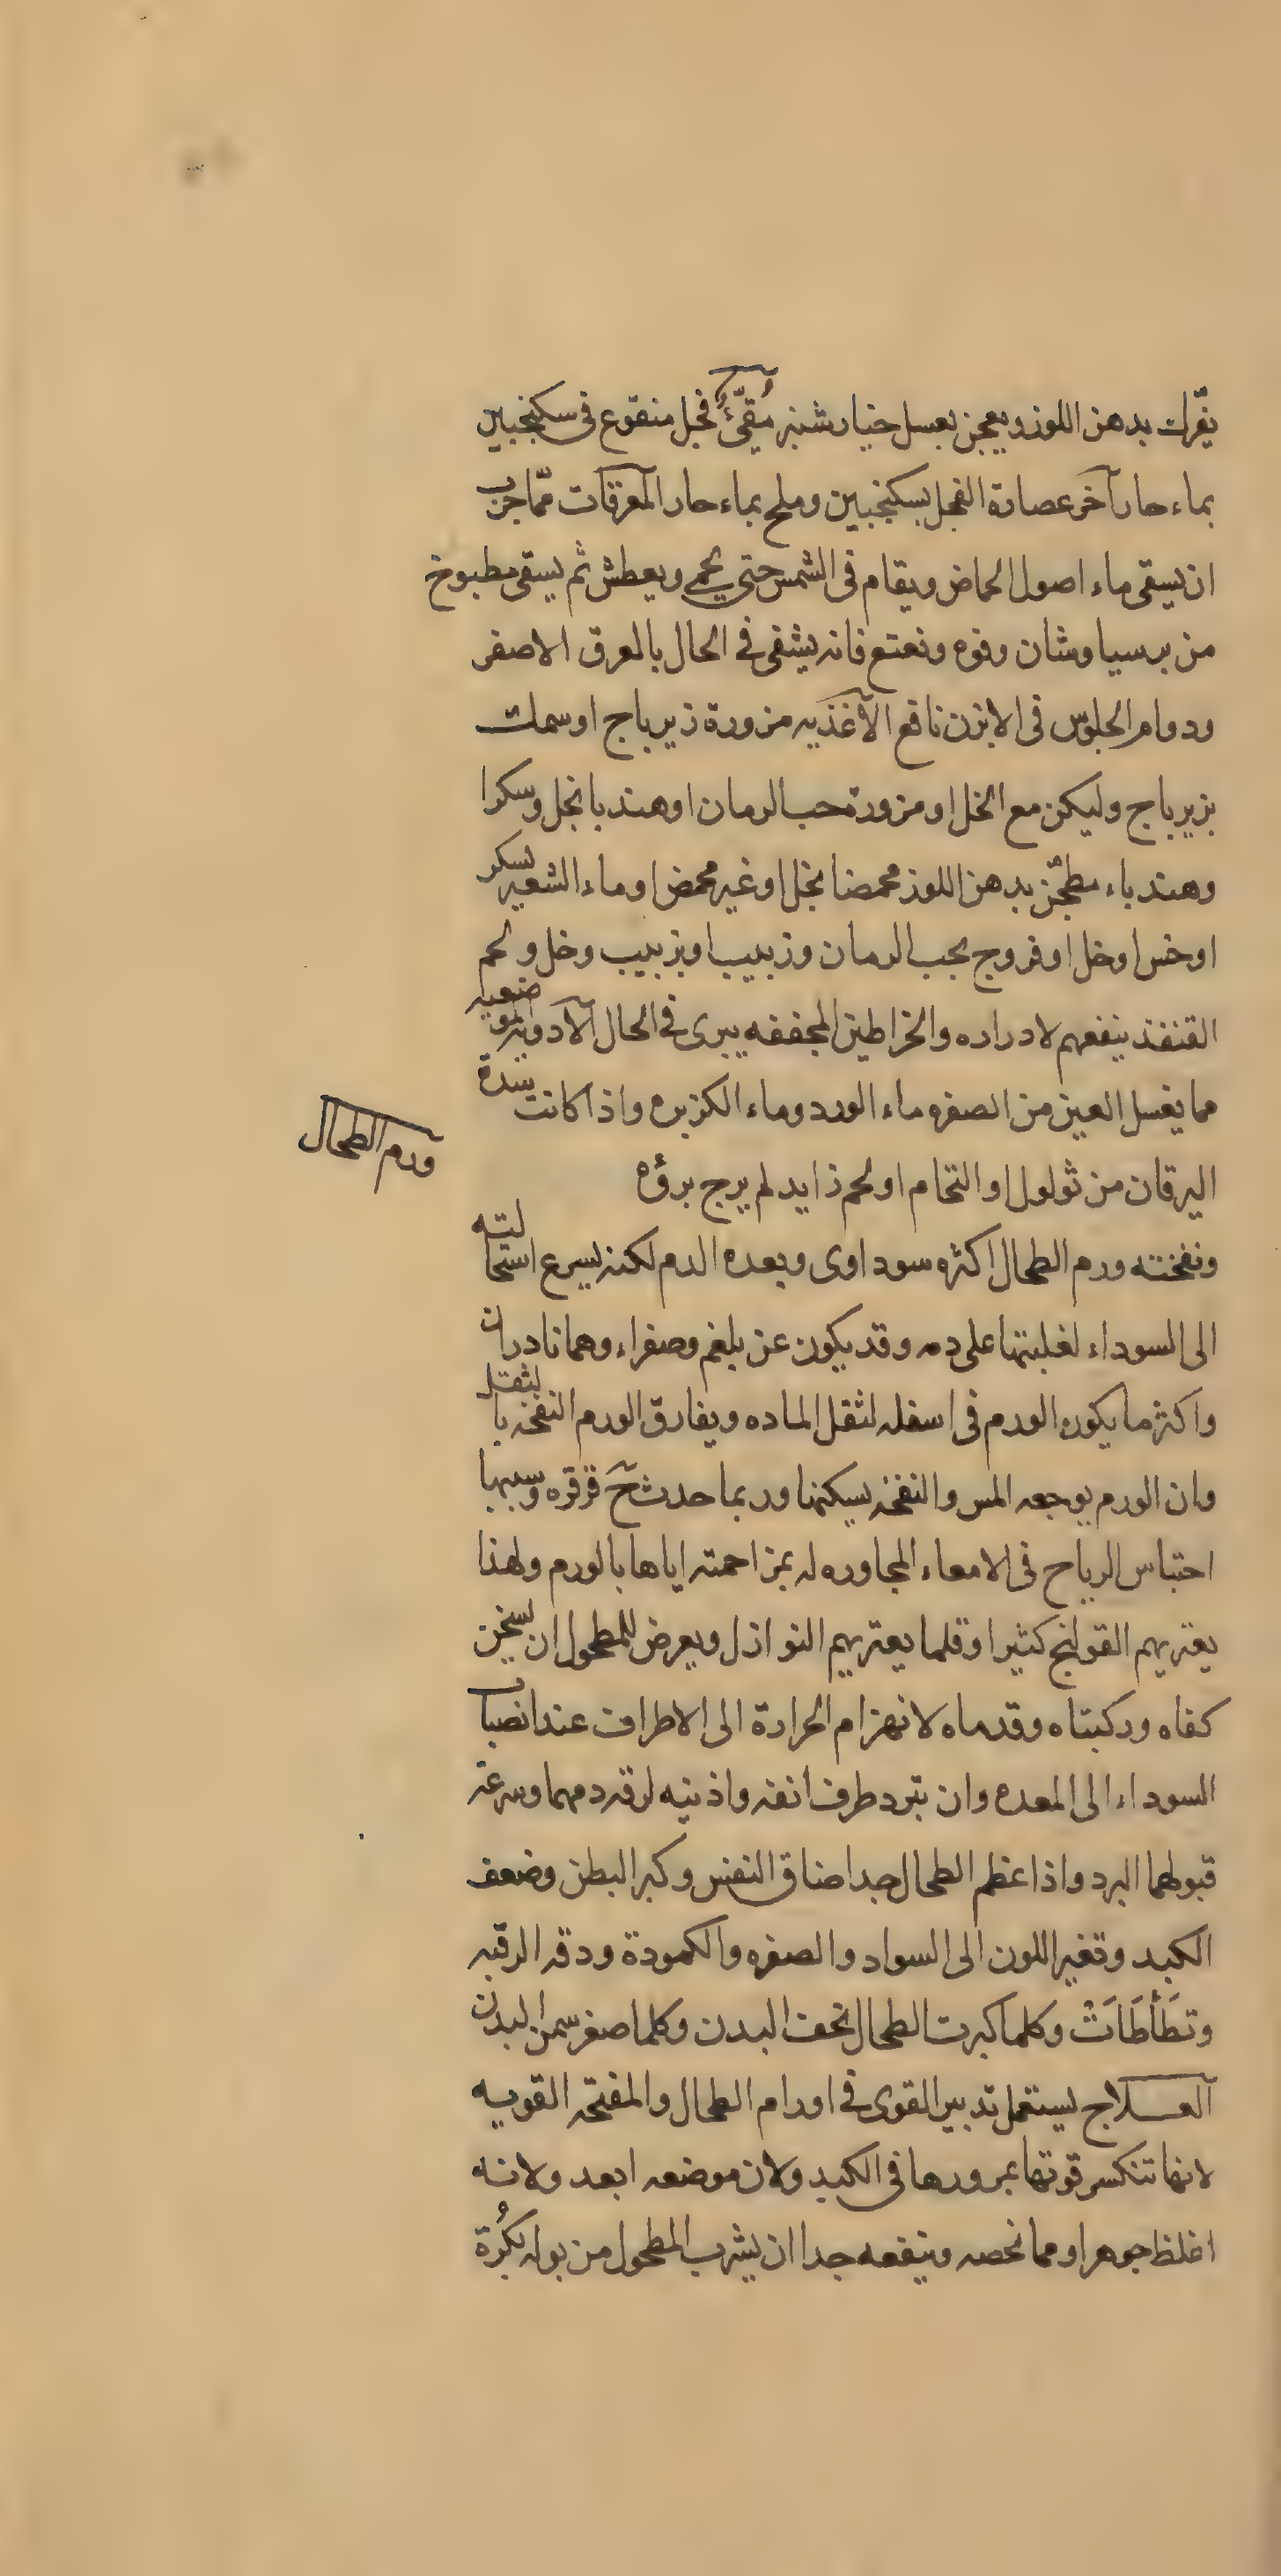 يفّرك بدهن اللوز ويعجن بعسل خيار شنبر مُقيّئ فجل منقوع فى سكنجبين
بماء حار آخر عصارة الفجل بسكنجبين وملح بماء حار المعرقات ممّا جرب
ان يسقى ماء اصول الحماض ويقام فى الشمس حتى يحمى ويعطش ثم يسقى مطبوخ
من برسياوشان وفوه ونعنع فانه يشفى فى الحال بالعرق الاصفر
ودوام الجلوس فى الابزن نافع الاغذيه مزورة زيرباج او سمك
بزيرباج وليكن مع الخل او مزورة حب الرمان او هندبا بخل وسكر ا
وهندباء مطجّن بدهن اللوز محمضا بخل او غير محمض او ماء الشعير بسكر
او خس او خل او فروج بحب الرمان وزبيب او بزبيب وخل ولحم
القنفذ ينفعهم لادراره والخراطين المجففه يبرى فى الحال الادويه الموضعيه
مما يغسل العين من الصفره ماء الورد وماء الكزبره واذا كانت سدة
اليرقان من ثولول او التحام او لحم زايد لم يرج برؤه
ورم الطحال
ونفخته ورم الطحال اكثره سوداوى وبعده الدم لكنه يسرع استحالته
الى السوداء لغلبتها على دمه وقد يكون عن بلغم وصفراء وهما نادران
واكثر ما يكون الورم فى اسفله لثقل الماده ويفارق الورم النفخه بالثقل
وان الورم يوجعه المس والنفخه يسكنها وربما حدث حَ قرقره وسببها
احتباس الرياح فى الامعاء المجاوره له بمزاحمته اياها بالورم ولهذا
يعتريهم القولنج كثيرا وقلما يعتريهم النوازل ويعرض للمطحول ان يسخن
كفاه وركبتاه وقدماه لانهزام الحرارة الى الاطراف عند انصباب
السوداء الى المعده وان تبرد طرف انفه واذنيه لرقه دمهما وسرعة
قبولهما البرد واذا عظم الطحال جدا ضاق النفس وكبر البطن وضعف
الكبد وتغير اللون الى السواد والصفره والكمودة ودقه الرقبه
وتَطَأْطَاَتْ وكلما كبرت الطحال نحف البدن وكلما صغر سمن البدن
العلاج يستعمل تدبير القوى فى اورام الطحال والمفتحه القويه
لانها تنكسر قوتها بمرورها فى الكبد ولان موضعه ابعد ولانه
اغلظ جوهرا ومما نخصه وينفعه جدا ان يشرب المطحول من بوله بُكْرة